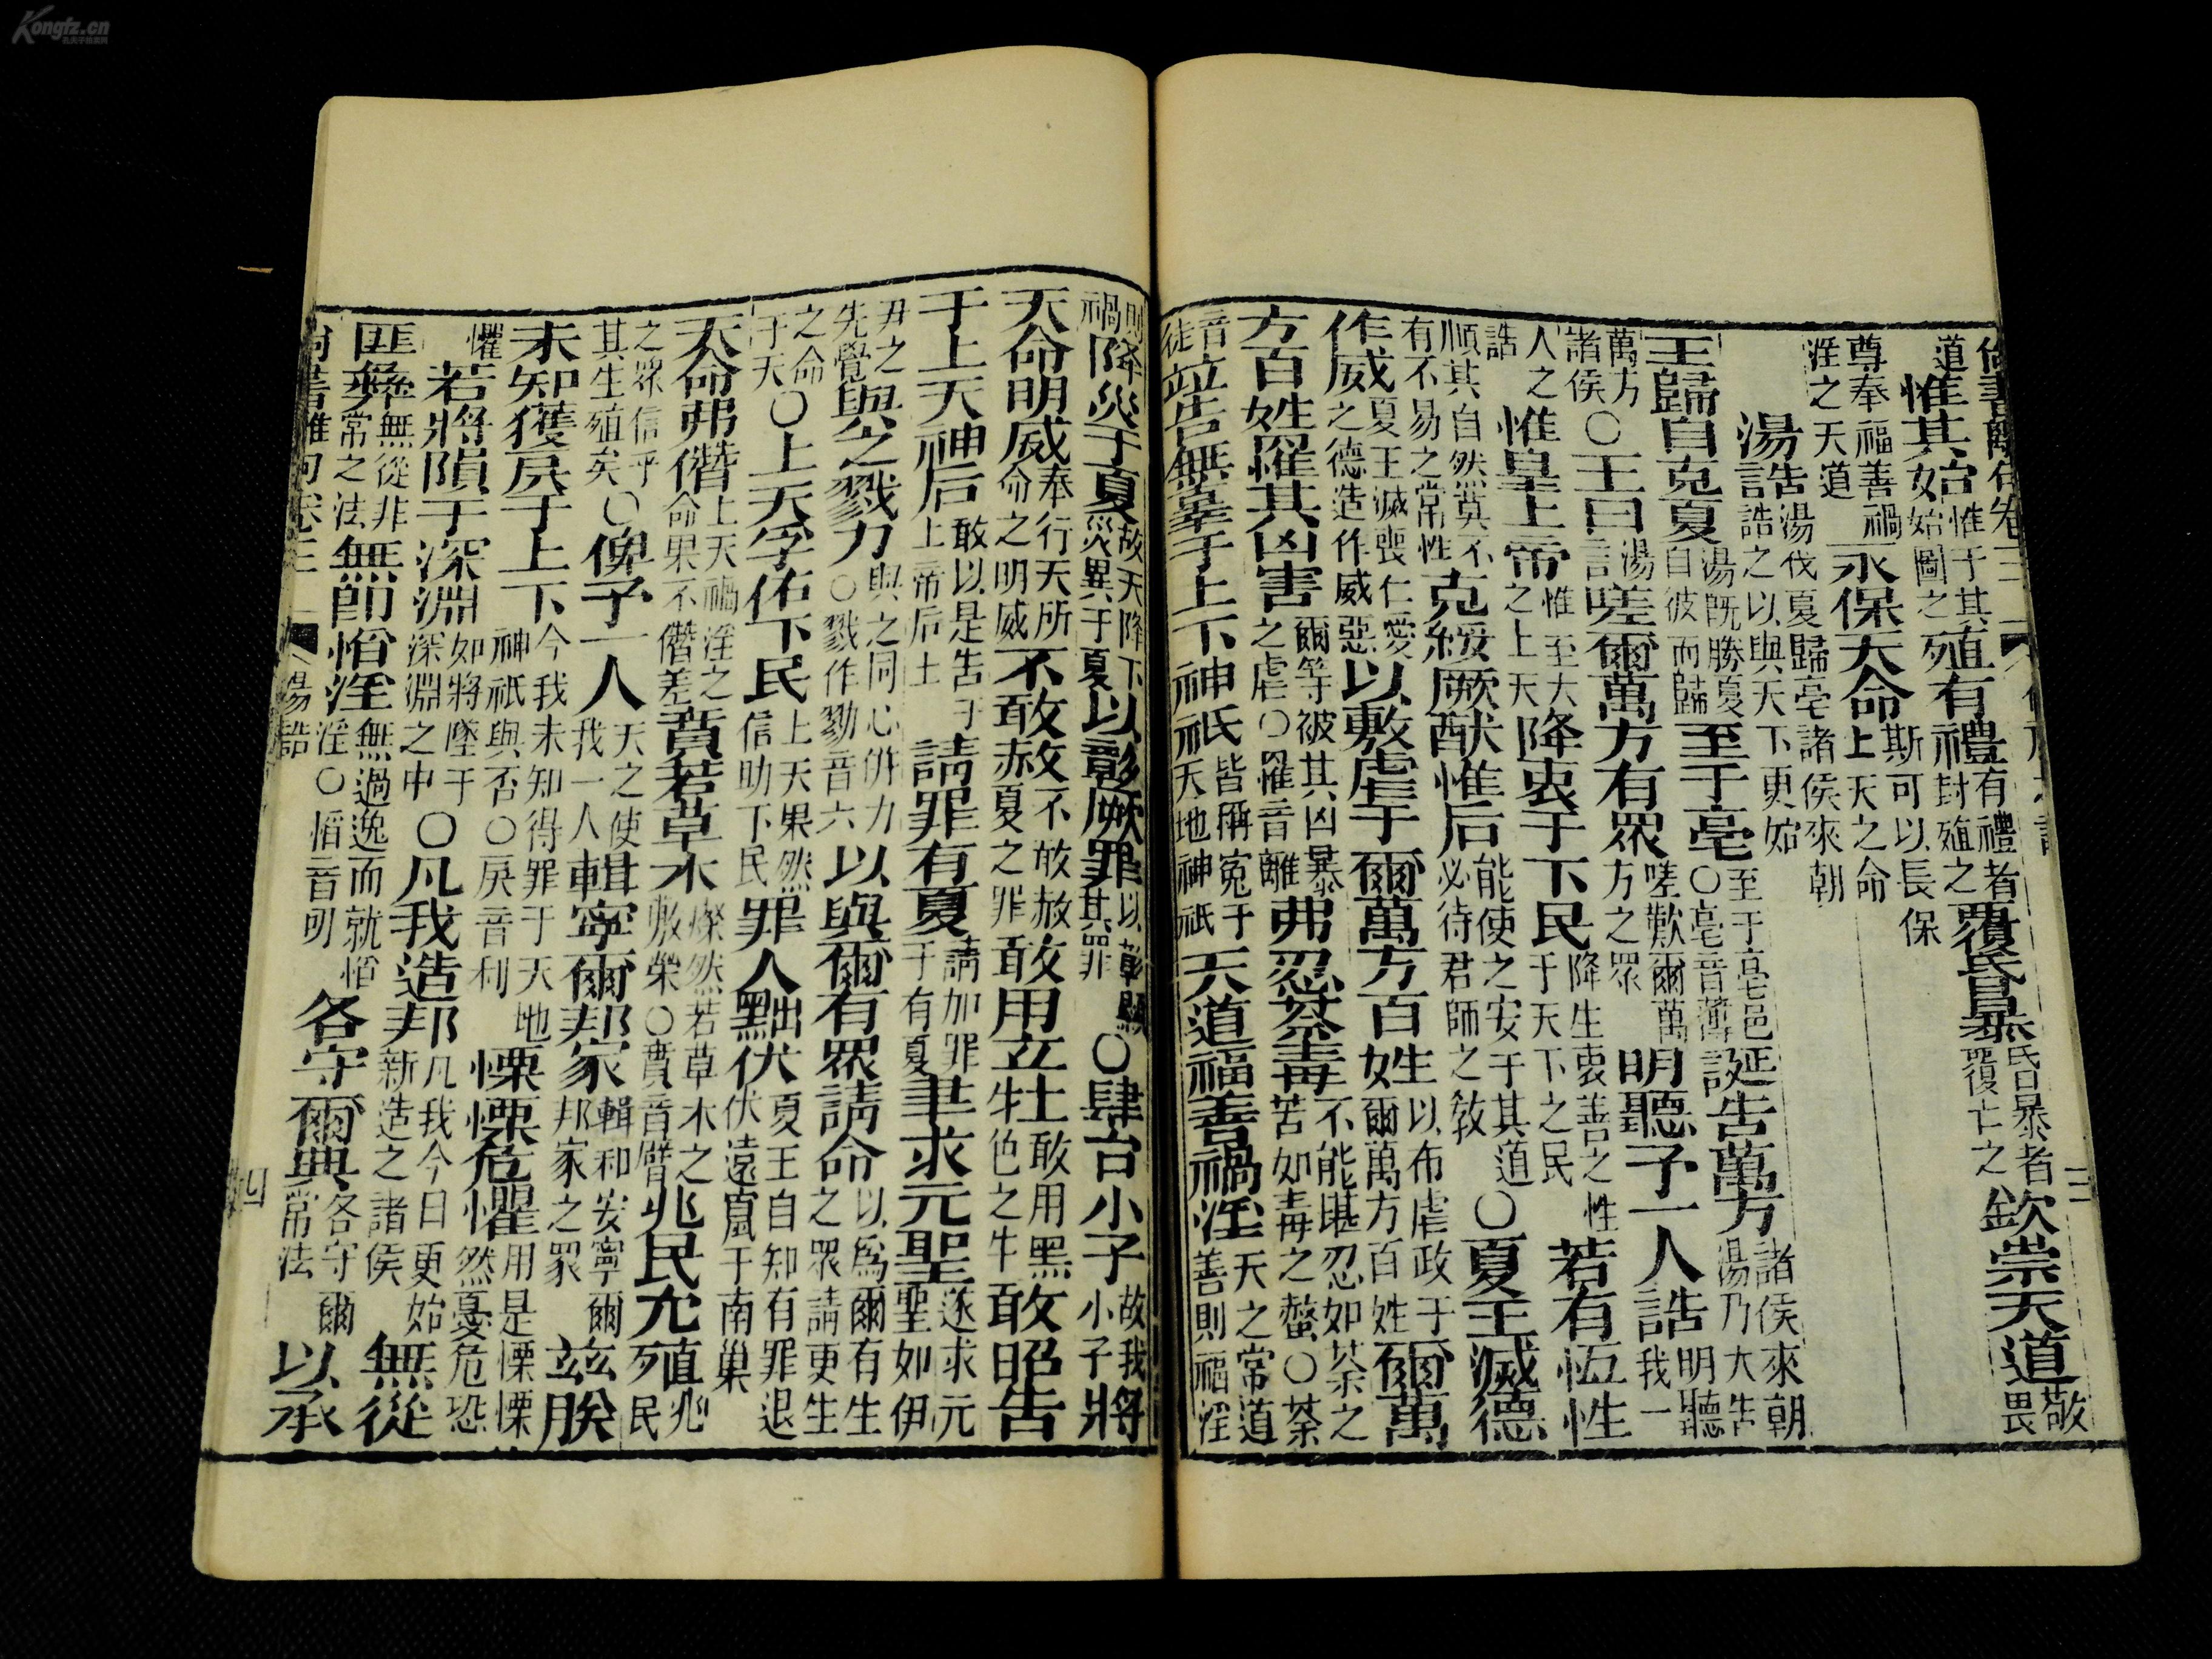 Kongfz.cn
尚書離句卷三
道惟其始惟于其始圖之殖有禮有禮者封殖之覆昏暴昏暴者覆亡之欽崇天道敬畏
尊奉福善禍淫之天道永保天命斯可以長保上天之命
湯誥湯伐夏歸亳諸侯來朝誥之以與天下更始
王歸自克夏湯旣勝夏自彼而歸至于亳至于亳邑○亳音薄誕告萬方諸侯來朝湯乃大告
萬方諸侯○王曰湯言嗟爾萬方有眾嗟歎爾萬方之眾明聽予一人誥明聽我一
人之誥惟皇上帝惟至大之上天降衷于下民降生衷善之性于天下之民若有恆性
順其自然莫不有不易之常性克綏厥猷惟后能使之安于其道必待君師之敎○夏王滅德
作威夏王滅喪仁愛之德造作威惡以敷虐于爾萬方百姓以布虐政于爾萬方百姓爾萬
方百姓罹其凶害爾等被其凶暴之虐○罹音離弗忍荼毒不能堪忍如荼之苦如毒之螫○荼
音徒並告無辜于上下神祇皆稱冤于天地神祇天道福善禍淫天之常道善則福淫
三
則禍降災于夏故天降下災異于夏以彰厥罪以彰顯其罪○肆台小子故我小子將
天命明威奉行天所命之明威不敢赦不敢赦夏之罪敢用玄牡敢用黑色之牛敢昭告
于上天神后敢以是告于上帝后土請罪有夏請加罪于有夏聿求元聖遂求元聖如伊
尹之先覺與之戮力與之同心併力○戮作勠音六以與爾有眾請命以爲爾有生之眾請更生
之命于天○上天孚佑下民上天果然信助下民罪人黜伏夏王自知有罪退伏遠竄于南巢
天命弗僭上天禍淫之命果不僭差賁若草木燦然若草木之敷榮○賁音臂兆民允殖兆民
之眾信乎其生殖矣○俾予一人天之使我一人輯寧爾邦家輯和安寧爾邦家之眾茲朕
未知獲戾于上下今我未知得罪于天地神祇與否○戾音利慄慄危懼用是慄慄然憂危恐
懼若將隕于深淵如將墜于深淵之中○凡我造邦凡我今日更始新造之諸侯無從
匪彝無從非常之法無卽慆淫無過逸而就慆淫○慆音叨各守爾典各守爾常法以承
尚書離句卷三 湯誥 四